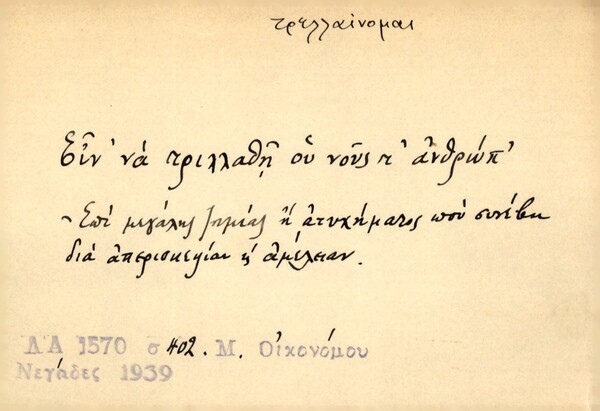 τρελλαίνομαι
Εἶν' νά τριλλαθῇ οὑ νοῦς τ' ἀνθρώπ'
- Ἐπί μεγάλης ζημίας ἤ ἀτυχήματος πού συνέβη
διά ἀπερισκεψίαν ἤ ἀμέλειαν.
ΛΑ 1570 σ 402. Μ. Οἰκονόμου
Νεγάδες 1939